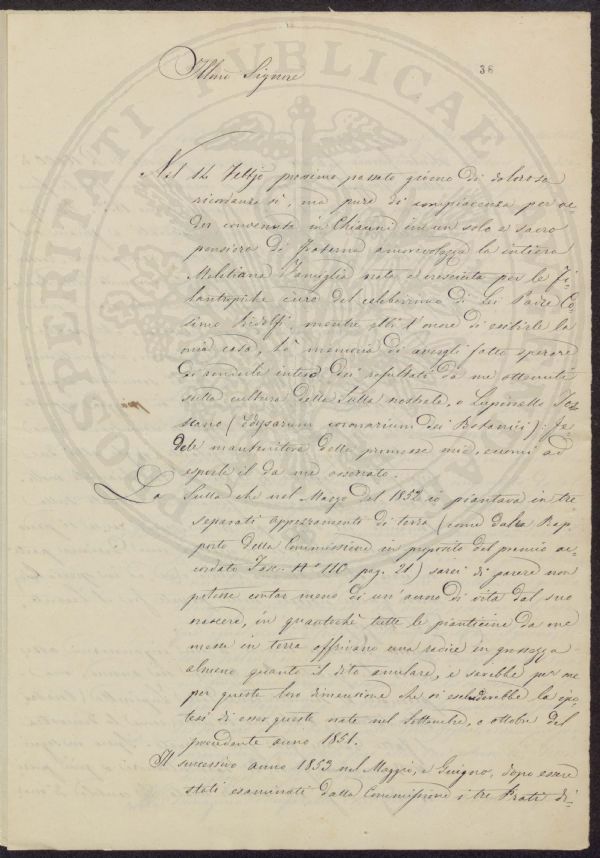 38
Illmo Signore
Nel 14 Febbjo prossimo passato giorno di dolorosa
ricordanza si, ma pure di compiacenza per ve
der convenuti in Chianni in un solo e sacro
pensiero di fraterna amorevolezza la intiera
Meletiana Famiglia nata, e cresciuta per le fi-
lantropiche cure del celeberrimo di Lei Padre Co-
simo Ridolfi, mentre ebbi l'onore di esibirle la
mia casa, la memoria di avergli fatto sperare
di renderla intesa dei resultati da me ottenuti
sulla cultura della Sulla nostrale, o Lupinella
(Edysarum coronarium dei Botanici): fe-
dele mantenitore delle promesse mie, eccomi ad
esporle il da me osservato.
La Sulla che nel Marzo del 1852 io piantava in tre
separati appezzamenti di terra (come dal Rap-
porto della Commissione in proposito del premio ac-
cordato pag. 21) sarei di parere non
potesse contar meno di un'anno di vita dal suo
nascere, in quantochè tutte le pianticine da me
messe in terra offrivano una radice in grossezza
almeno quanto il dito anulare, e sarebbe per me
per questa loro dimensione che si escluderebbe la ipo-
tesi di esser queste nate nel Settembre, o ottobre del
precedente anno 1851.
Il successivo anno 1853 nel Maggio, e Giugno, dopo essere
stati esaminati dalla Commissione i tre Prati di-